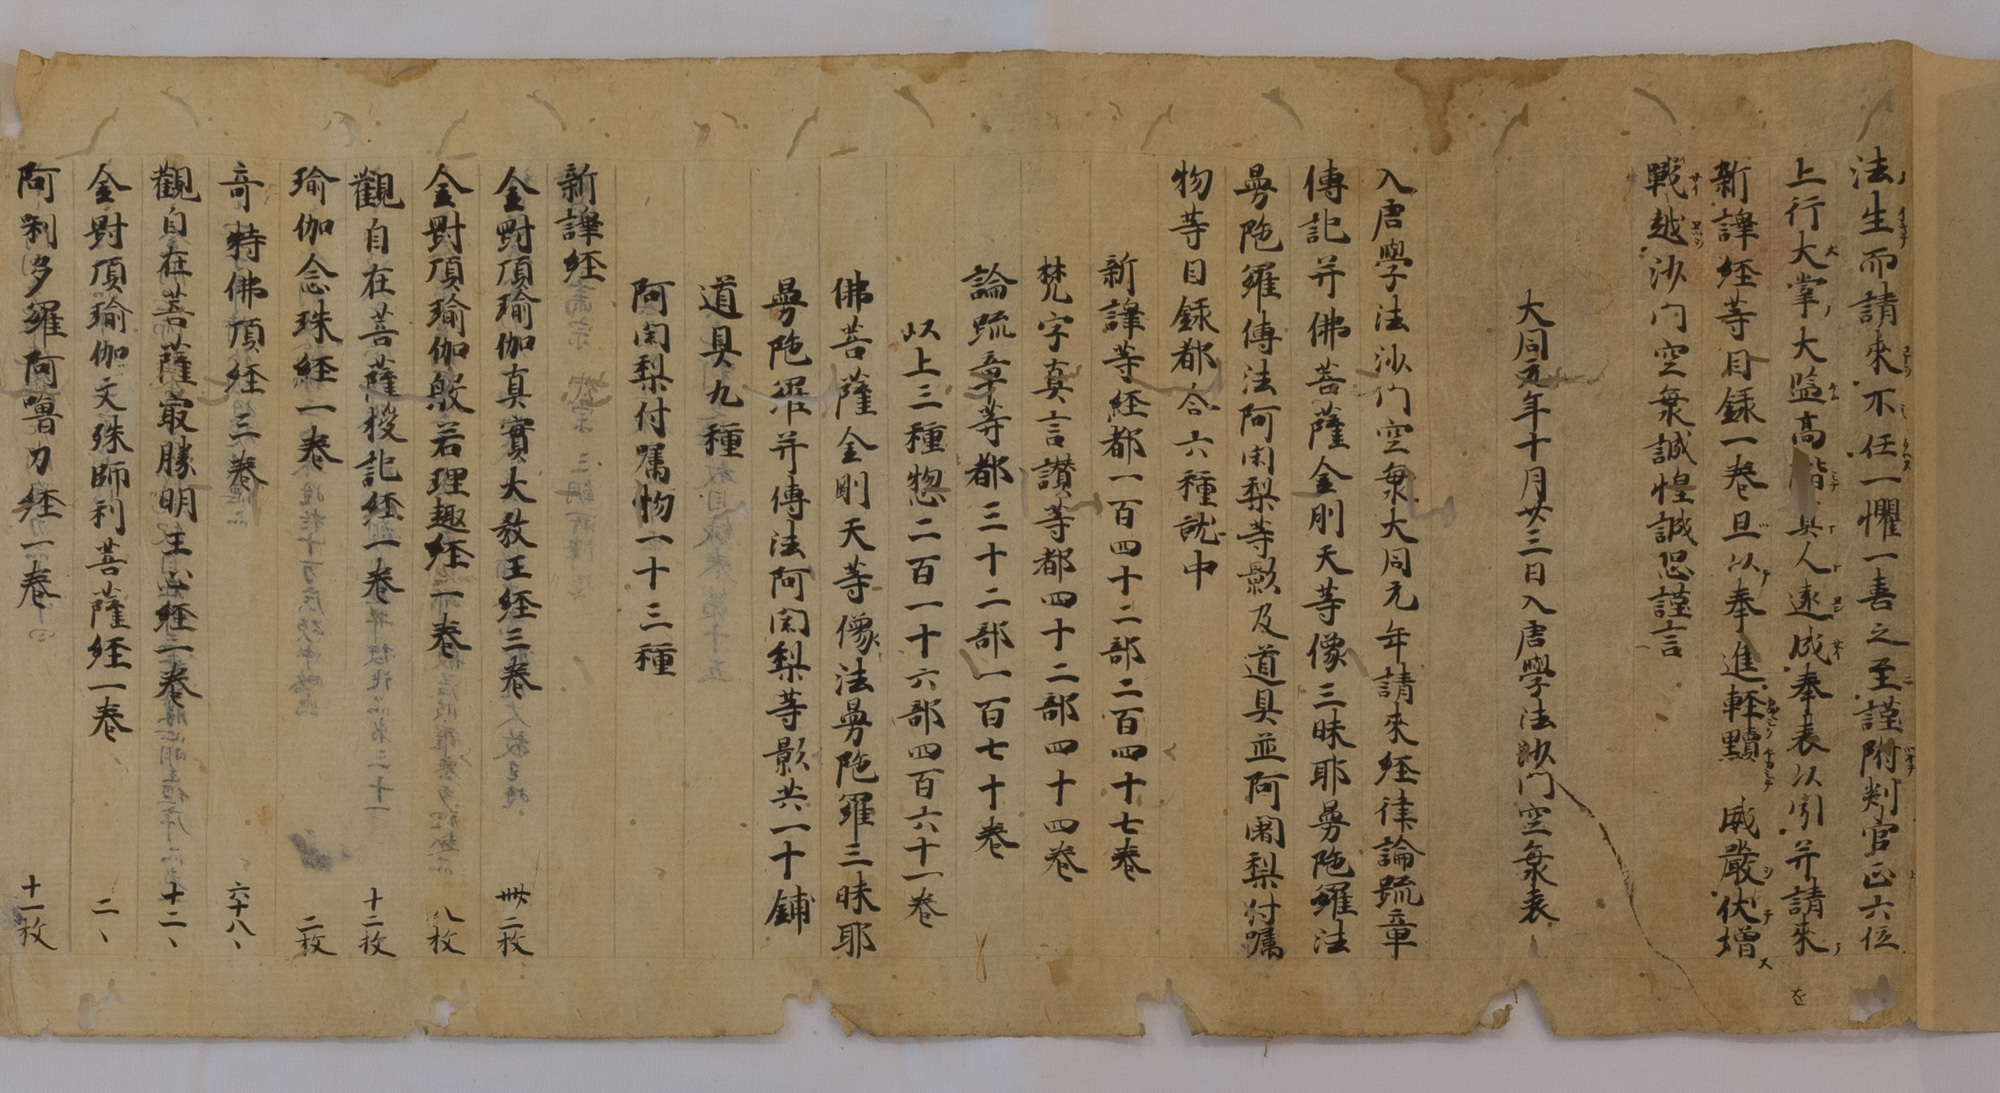 法生而請来不任一懼一喜之至謹附判官正六位
上行大掌大監高階真人遠成奉表以引并請来
新譯経等目録一巻且以奉進軽黷威嚴伏増
戰越沙門空海誠惶誠恐謹言
大同元年十月廿三日入唐學法沙門空海表
入唐學法沙門空海大同元年請来経律論疏章
傳記并佛菩薩金剛天等像三昧耶曼陁羅法
曼陁羅傳法阿闍梨等影及道具並阿闍梨付嘱
物等目録都合六種就中
新譯等経都一百四十二部二百四十七巻
梵字真言讃等都四十二部四十四巻
論疏章等都三十二部一百七十巻
以上三種惣二百一十六部四百六十一巻
佛菩薩金剛天等像法曼陁羅三昧耶
曼陁羅并傳法阿闍梨等影共一十鋪
道具九種
阿闍梨付嘱物一十三種
新譯経
金對頂瑜伽真實大教王経三巻 卌二枚
金對頂瑜伽般若理趣経一巻 八枚
觀自在菩薩授記経一巻 十二枚
瑜伽念珠経一巻 二枚
奇特佛頂経三巻 六十八、
觀自在菩薩最勝明王心経一巻 十二、
金對頂瑜伽文殊師利菩薩経一巻 二、
阿利多羅阿嚕力経一巻 十一枚